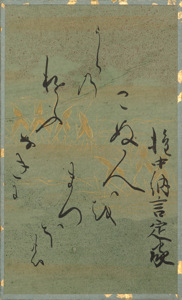 権中納言定家
こぬ人を
まつほの
うらの
ゆふ
なきに